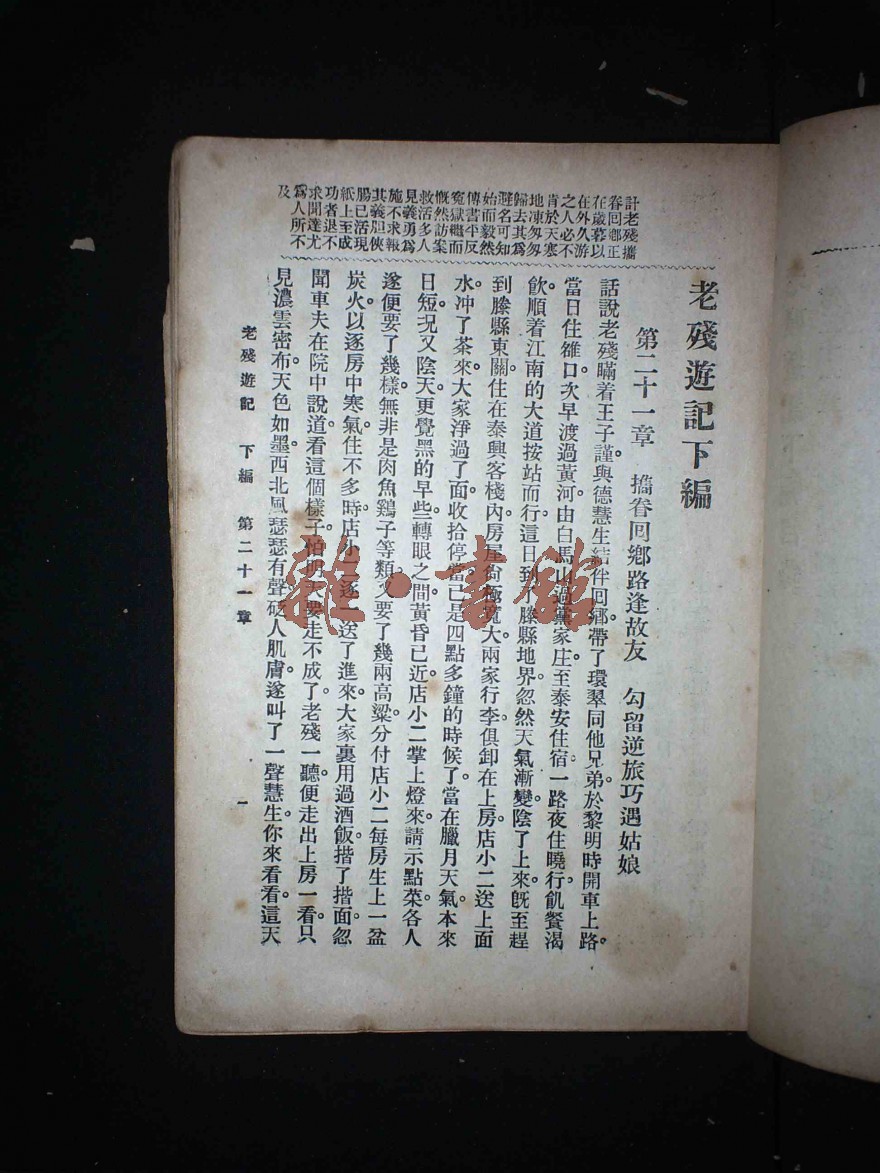 老殘遊記下編
第二十一章 攜眷回鄉路逢故友 勾留逆旅巧遇姑娘
計老殘攜
眷回鄉正
在歲暮以
在外久游
之人必不
肯於天寒
地凍匆匆
歸去其爲
避名可知
始而毅然
傳書平反
冤獄繼而
慨然訪案
救活多人
見義勇爲
施不求報
其義胆俠
腸已活現
紙上至成
功者退不
求聞達尤
爲人所不
及
話說老殘瞞着王子謹與德慧生結伴回鄉。帶了環翠同他兄弟於黎明時開車上路。
當日住雒口。次早渡過黃河。由白馬山過黨家庄至泰安住宿一路夜住曉行飢餐渴
飲順着江南的大道按站而行這日到滕縣地界。忽然天氣漸變。陰了上來。旣至趕
到滕縣東關。住在泰興客棧內。房屋尙極寬大。兩家行李俱卸在上房店小二送上面
水。冲了茶來。大家淨過了面收拾停當已是四點多鐘的時候了。當在臘月天氣本來
日短。況又陰天。更覺黑的早些轉眼之間黃昏已近。店小二掌上燈來。請示點菜。各人
遂便要了幾樣。無非是肉魚鷄子等類。又要了幾兩高粱。分付店小二每房生上一盆
炭火。以逐房中寒氣。住不多時。店小二逐一送了進來。大家裏用過酒飯。揩了揩面。忽
聞車夫在院中說道看這個樣子怕明天要走不成了。老殘一聽。便走出上房一看。只
見濃雲密布天色如墨。西北風瑟瑟有聲砭人肌膚。遂叫了一聲慧生。你來看看。這天
老殘遊記 下編 第二十一章 一
雜·書館